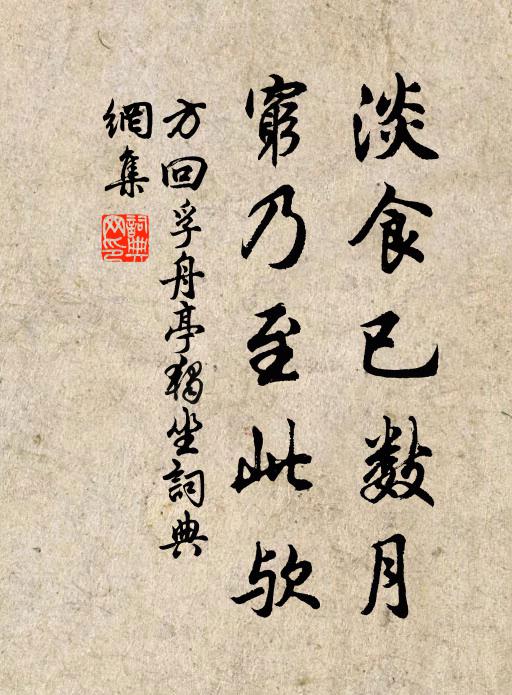 淡食已数月
窮乃至此欤
方回孚舟亭獨坐詞典
網集
詞典
网印